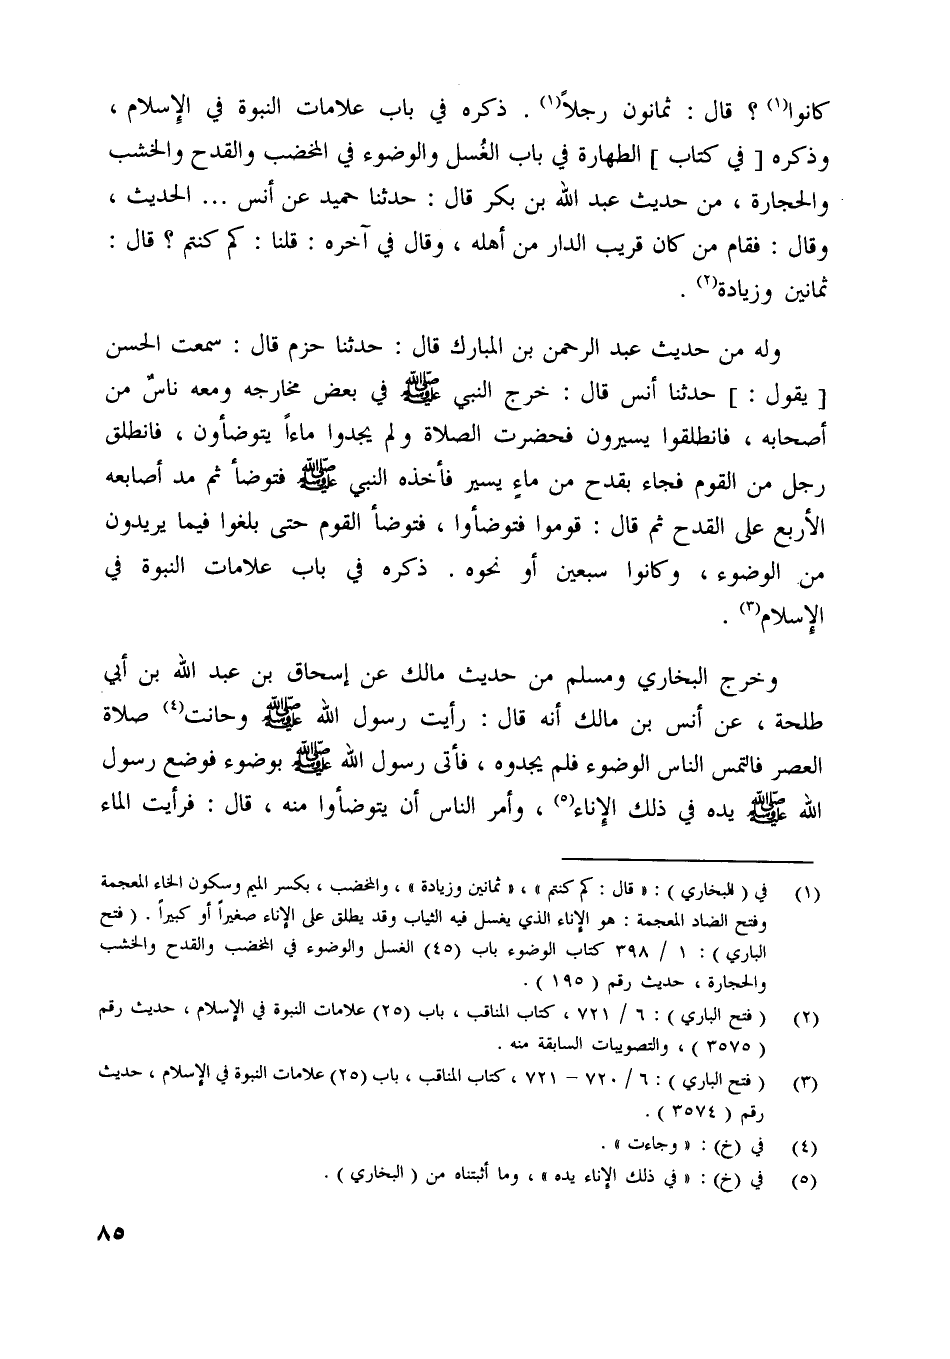 كانوا(١) ؟ قال : ثمانون رجلاً(١) . ذكره في باب علامات النبوة في الإسلام ،
وذكره [ في كتاب ] الطهارة في باب الغُسل والوضوء في المخضب والقدح والخشب
والحجارة ، من حديث عبد الله بن بكر قال : حدثنا حميد عن أنس ... الحديث ،
وقال : فقام من كان قريب الدار من أهله ، وقال في آخره : قلنا : كم كنتم ؟ قال :
ثمانين وزيادة(٢) .
وله من حديث عبد الرحمن بن المبارك قال : حدثنا حزم قال : سمعت الحسن
[ يقول : ] حدثنا أنس قال : خرج النبي ﷺ في بعض مخارجه ومعه ناسٌ من
أصحابه ، فانطلقوا يسيرون فحضرت الصلاة ولم يجدوا ماءاً يتوضأون ، فانطلق
رجل من القوم فجاء بقدح من ماءٍ يسير فأخذه النبي ﷺ فتوضأ ثم مد أصابعه
الأربع على القدح ثم قال : قوموا فتوضأوا ، فتوضأ القوم حتى بلغوا فيما يريدون
من الوضوء ، وكانوا سبعين أو نحوه . ذكره في باب علامات النبوة في
الإسلام(٣) .
وخرج البخاري ومسلم من حديث مالك عن إسحاق بن عبد الله بن أبي
طلحة ، عن أنس بن مالك أنه قال : رأيت رسول الله ﷺ وحانت(٤) صلاة
العصر فالتمس الناس الوضوء فلم يجدوه ، فأتى رسول الله ﷺ بوضوء فوضع رسول
الله ﷺ يده في ذلك الإناء(٥) ، وأمر الناس أن يتوضأوا منه ، قال : فرأيت الماء
(١) في ( للبخاري ) : « قال : كم كنتم » ، « ثمانين وزيادة » ، والمخضب ، بكسر الميم وسكون الخاء المعجمة
وفتح الضاد المعجمة : هو الإناء الذي يغسل فيه الثياب وقد يطلق على الإناء صغيراً أو كبيراً . ( فتح
الباري ) : ١ / ٣٩٨ كتاب الوضوء باب (٤٥) الغسل والوضوء في المخضب والقدح والخشب
والحجارة ، حديث رقم ( ١٩٥ ) .
(٢) ( فتح الباري ) : ٦ / ٧٢١ ، كتاب المناقب ، باب (٢٥) علامات النبوة في الإسلام ، حديث رقم
( ٣٥٧٥ ) ، والتصويبات السابقة منه .
(٣) ( فتح الباري ) : ٦ / ٧٢٠ – ٧٢١ ، كتاب المناقب ، باب (٢٥) علامات النبوة في الإسلام ، حديث
رقم ( ٣٥٧٤ ) .
(٤) في (خ) : « وجاءت » .
(٥) في (خ) : « في ذلك الإناء يده » ، وما أثبتناه من ( البخاري ) .
٨٥